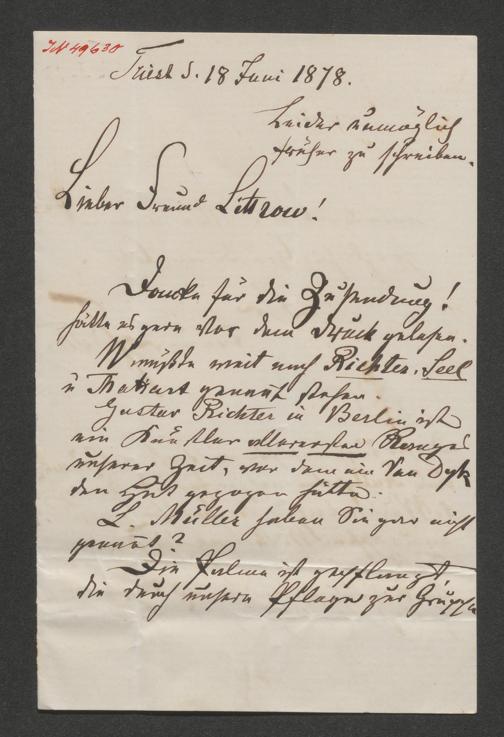 IN 49630
Triest d. 18 Juni 1878.
Leider unmöglich
früher zu schreiben.
Lieber Freund Littrow!
Danke für die Zusendung!
hätte es gern vor dem Druck gelesen.
W müßte weit nach Richter, Seel
u Makart genant stehen
Gustav Richter in Berlin ist
ein Künstler allerersten Ranges
unserer Zeit, vor dem ein Van Dyk
den Hut gezogen hätte.
L. Müller haben Sie gar nicht
genant?
Die Palme ist gepflanzt,
die durch unsere Pflege zur Gruppe